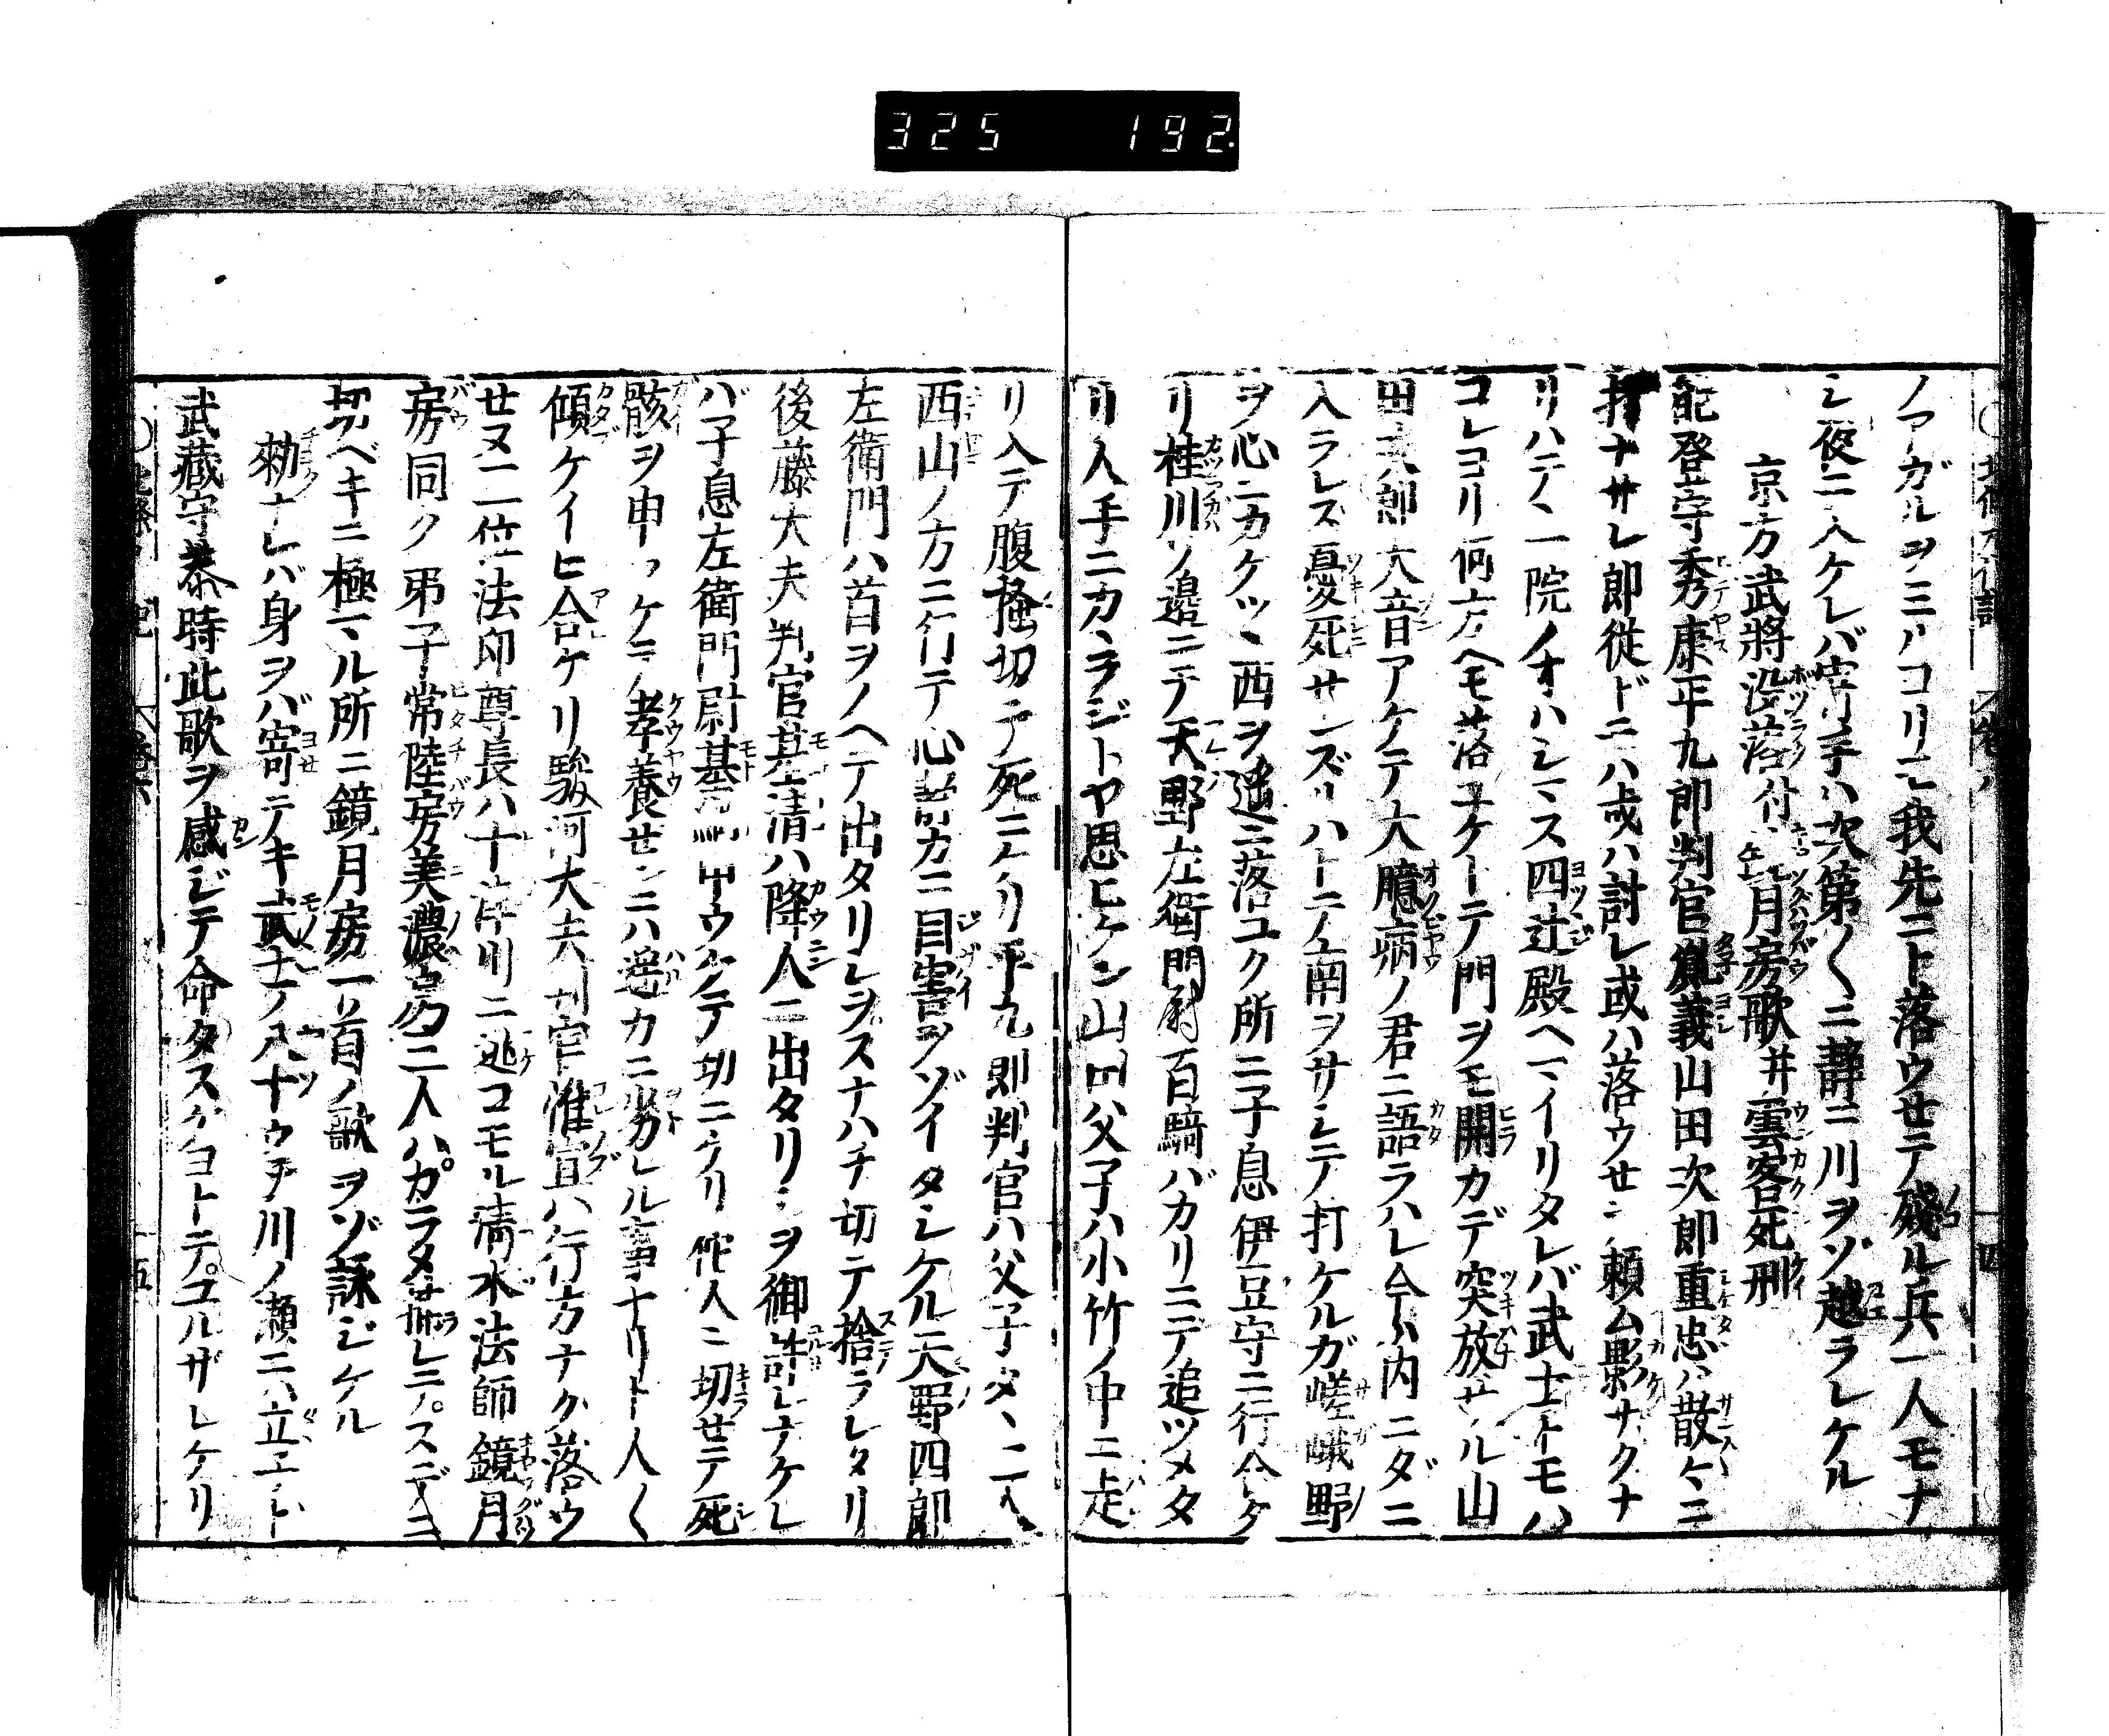 325 192
ノアガルヲミハコリニ我先ニト落ウセテ殘ル兵一人モナ
シ夜ニ入ケレバ寄手ハ次第〱ニ靜ニ川ヲゾ越ラレケル
京方武將沒落付月房歌并雲客死刑
能登守秀康平九郎判官胤義山田次郎重忠ハ散々ニ
打ナサレ郎從ドニハ或ハ討レ或ハ落ウセシ頼ム影サクナ
リハテヽ一院ノオハシマス四辻殿ヘマイリタレバ武士トモハ
コレヨリ何方ヘモ落ユケトテ門ヲモ開カデ突放サル山
田次郎大音アケテ大臆病ノ君ニ語ラハレ今ハ内ニダニ
入ラレス憂死センズハトテ南ヲサシテ打ケルガ嵯峨野
ヲ心ニカケツヽ西ヲ遙ニ落ユク所ニ子息伊豆守ニ行合タ
リ桂川ノ邊ニテ天野左衞門尉百騎バカリニテ追ツメタ
リ人手ニカヽラジトヤ思ヒケン山田父子ハ小竹ノ中ニ走
リ入テ腹搔切テ死ニケリ平九郎判官ハ父子タヽ二人
西山ノ方ニ行テ心靜カニ自害ヲゾイタシケル天野四郎
左衞門ハ首ヲノヘテ出タリシヲスナハチ切テ捨ラレタリ
後藤大夫判官基清ハ降人ニ出タリシヲ御許シナケレ
バ子息左衞門尉基綱申ウケテ切ニケリ他人ニ切セテ死
骸ヲ申ウケテ孝養センニハ遙カニ劣レル事ナリト人〱
傾ケイヒ合ケリ駿河大夫判官惟宣ハ行方ナク落ウ
セヌ二位法印尊長ハ十津川ニ逃コモル清水法師鏡月
房同ク弟子常陸房美濃房三人ハカラメ捕レテスデニ
切ベキニ極マル所ニ鏡月房一首ノ歌ヲゾ詠ジケル
勅ナレバ身ヲバ寄テキ武士ノ八十ウチ川ノ瀬ニハ立子ド
武藏守泰時此歌ヲ感ジテ命タスケヨトテユルザレケリ